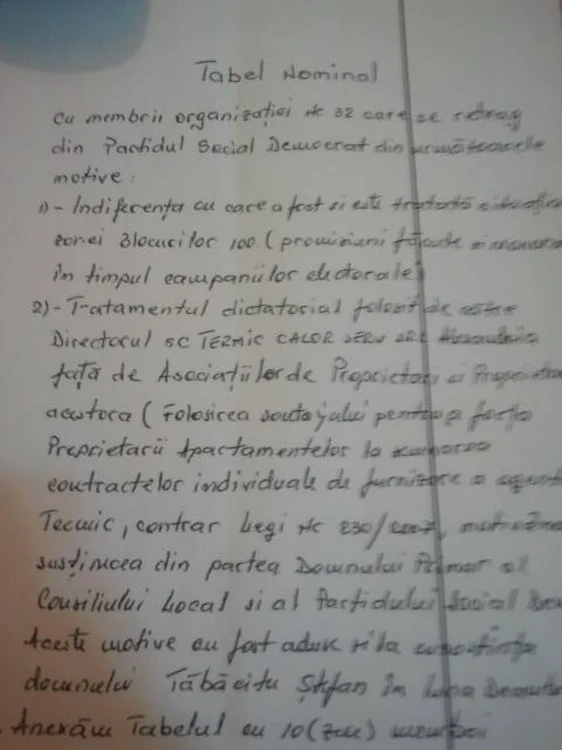 Tabel Nominal
cu membrii organizației nr 32 care se retrag
din Partidul Social Democrat din următoarele
motive:
1) - Indiferența cu care a fost si este tratată situația
zonei Blocurilor 100 (promisiuni făcute
în timpul campaniilor electorale)
2) - Tratamentul dictatorial folosit de către
Directorul SC TERMIC CALOR SERV SRL Alexandria
față de Asociațiilor de Proprietari si
acestora (Folosirea santajului pentru a forța
Proprietarii Apartamentelor la
contractelor individuale de furnizare a agent
Tecnic, contrar Legi nr 230/2007,
susținerea din partea Domnului Primar al
Consiliului Local si al Partidului Social
Aceste motive au fost aduse si la
domnului Tăbăcitu Ștefan în luna
Anexăm Tabelul cu 10 (zece) membri